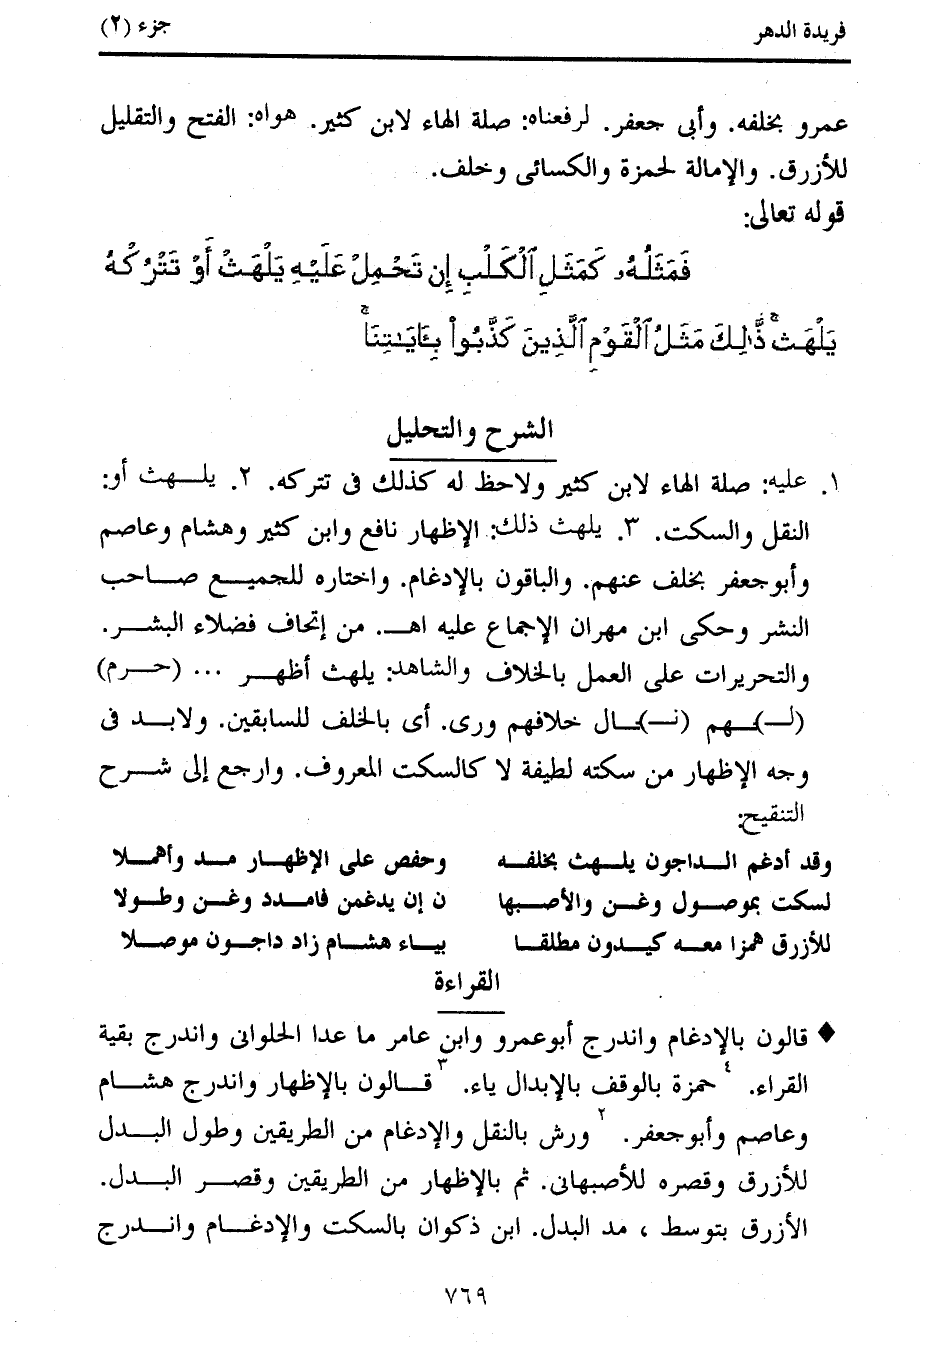 فريدة الدهر جزء (٢)
عمرو بخلفه. وأبى جعفر. لرفعناه: صلة الهاء لابن كثير. هواه: الفتح والتقليل
للأزرق. والإمالة لحمزة والكسائى وخلف.
قوله تعالى:
فَمَثَلُهُۥ كَمَثَلِ ٱلْكَلْبِ إِن تَحْمِلْ عَلَيْهِ يَلْهَثْ أَوْ تَتْرُكْهُ
يَلْهَث ۚ ذَّٰلِكَ مَثَلُ ٱلْقَوْمِ ٱلَّذِينَ كَذَّبُوا۟ بِـَٔايَـٰتِنَا ۚ
الشرح والتحليل
١. عليه: صلة الهاء لابن كثير ولاحظ له كذلك فى تتركه. ٢. يلـهث أو:
النقل والسكت. ٣. يلهث ذلك: الإظهار نافع وابن كثير وهشام وعاصم
وأبوجعفر بخلف عنهم. والباقون بالإدغام. واختاره للجميـع صـاحب
النشر وحكى ابن مهران الإجماع عليه اهـ. من إتحاف فضلاء البشـر.
والتحريرات على العمل بالخلاف والشاهد: يلهث أظهـر ... (حـرم)
(لـ)ـهم (نـ)ـال خلافهم ورى. أى بالخلف للسابقين. ولابـد فى
وجه الإظهار من سكته لطيفة لا كالسكت المعروف. وارجع إلى شـرح
التنقيح:
وقد أدغم الـداجون يلـهث بخلفـه وحفص على الإظهـار مـد وأهمـلا
لسكت بموصـول وغـن والأصـبها ن إن يدغمن فامـدد وغـن وطـولا
للأزرق همزا معـه كيـدون مطلقـا بيـاء هشـام زاد داجـون موصـلا
القراءة
♦ قالون بالإدغام واندرج أبوعمرو وابن عامر ما عدا الحلوانى واندرج بقية
القراء. ٤ حمزة بالوقف بالإبدال ياء. ٣ قـالون بالإظهار واندرج هشـام
وعاصم وأبوجعفر. ٢ ورش بالنقل والإدغام من الطريقين وطول البـدل
للأزرق وقصره للأصبهانى. ثم بالإظهار من الطريقين وقصـر البـدل.
الأزرق بتوسط ، مد البدل. ابن ذكوان بالسكت والإدغـام وانـدرج
٧٦٩